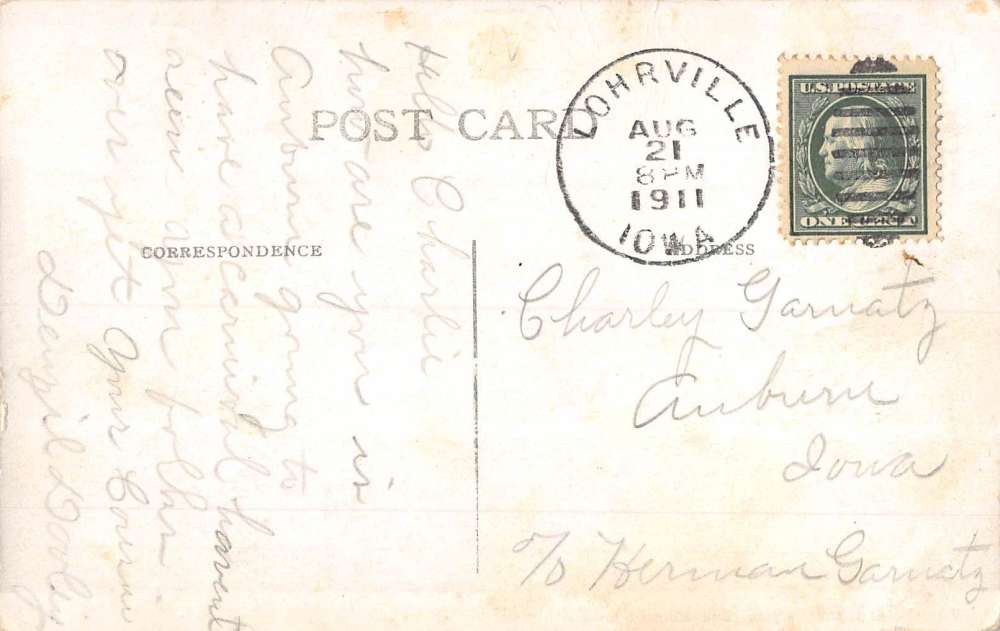 POST CARD
LOHRVILLE
AUG
21
8 PM
1911
IOWA
U.S. POSTAGE
ONE CENT
CORRESPONDENCE
ADDRESS
Hello Charlie
how are you is
Auburn going to
have a carnival havent
seen your folks
over yet Your Cousin
Denzil Dooley
Charley Garnatz
Auburn
Iowa
c/o Herman Garnatz